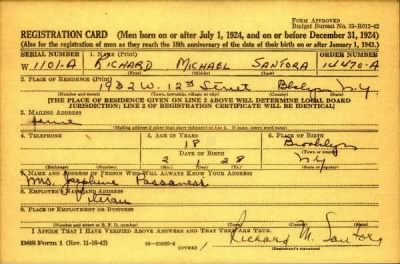 FORM APPROVED
Budget Bureau No. 33-R012-42
REGISTRATION CARD (Men born on or after July 1, 1924, and on or before December 31, 1924)
(Also for the registration of men as they reach the 18th anniversary of the date of their birth on or after January 1, 1943.)
SERIAL NUMBER 1. NAME (Print) ORDER NUMBER
W 1101-A RICHARD MICHAEL SANTORA 14470-A
(First) (Middle) (Last)
2. PLACE OF RESIDENCE (Print)
1932 W. 12th Street N.Y.
(Number and street) (Town, township, village, or city) (County) (State)
[THE PLACE OF RESIDENCE GIVEN ON LINE 2 ABOVE WILL DETERMINE LOCAL BOARD
JURISDICTION; LINE 2 OF REGISTRATION CERTIFICATE WILL BE IDENTICAL]
3. MAILING ADDRESS
Same
[Mailing address if other than place indicated on line 2. If same, insert word same]
4. TELEPHONE 5. AGE IN YEARS 6. PLACE OF BIRTH
18 Brooklyn
DATE OF BIRTH (Town or county)
2 1 28 N.Y.
(Exchange) (Number) (Mo.) (Day) (Yr.) (State or country)
7. NAME AND ADDRESS OF PERSON WHO WILL ALWAYS KNOW YOUR ADDRESS
Mrs. Josephine
8. EMPLOYER'S NAME AND ADDRESS
Veteran
9. PLACE OF EMPLOYMENT OR BUSINESS
(Number and street or R. F. D. number) (Town) (County) (State)
I AFFIRM THAT I HAVE VERIFIED ABOVE ANSWERS AND THAT THEY ARE TRUE.
DSS Form 1 (Rev. 11-16-42) (OVER) Richard M. Santora